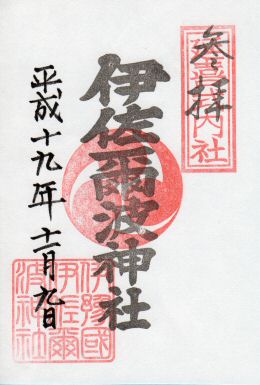 参拝
延喜式内社
伊佐爾波神社
平成十九年十二月九日
伊豫國
伊佐爾
波神社